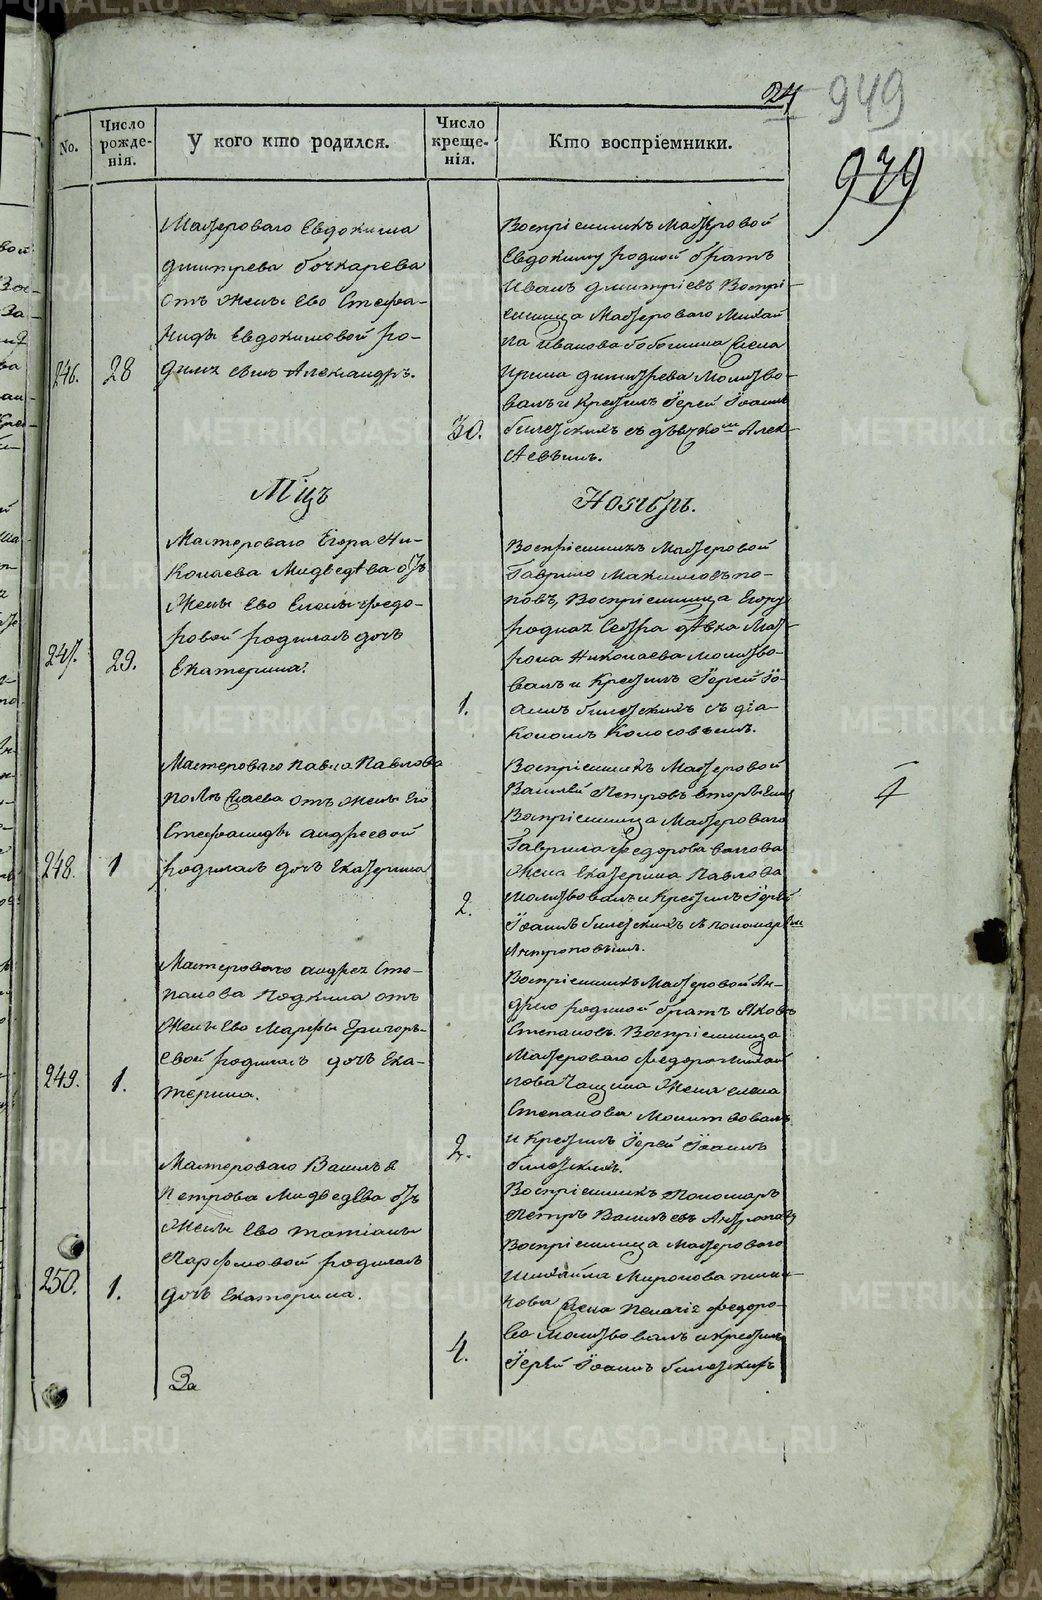 24
949
979
No.
Число рожде-нія.
У кого кто родился.
Число креще-нія.
Кто воспріемники.
246.
28
Мастероваго Евдокима
димтрева бочкарева
отъ жены ево Стефа-
ниды Евдокимовой ро-
дился сынъ Александръ.
30.
Воспріемникъ Мастеровой
Евдокиму родной братъ
Иванъ дмитріевъ Воспрі-
емница Мастероваго Михай
ла Иванова жена
Ирина димитрева Молитво-
валъ и крестилъ Іерей Іоаннъ
билетскихъ съ дьячкомъ Алек-
Мцъ Ноябрь.
247.
29.
Мастероваго Егора Ни-
колаева Мидведева отъ
жены Ево Елены Федо-
ровой родилась дочь
Екатерина.
1.
Воспріемникъ Мастеровой
Гаврило Максимовъ по-
повъ, Воспріемница Егору
родная Сестра дѣвка Мат-
рона Николаева молитво-
валъ и крестилъ Іерей Іо-
аннъ билетскихъ съ діа-
кономъ Колосовымъ.
248.
1
Мастероваго Павла Павлова
отъ жены Его
Стефаниды андреевой
родилась дочь Екатерина
2.
Воспріемникъ Мастеровой
Василей Петровъ
Воспріемница Мастероваго
Гаврила Федорова
жена Екатерина Павлова
молитвовалъ и крестилъ Іерей
Іоаннъ билетскихъ съ пономаремъ
Антроповымъ.
249.
1.
Мастероваго андрея Сте-
панова отъ
жены Ево Марфы Григорь-
евой родилась дочь Ека-
терина.
2.
Воспріемникъ Мастеровой Ан-
дрею родной братъ Яковъ
Степановъ. Воспріемница
Мастероваго Федора Михай
лова жена елена
Степанова Молитвовалъ
и крестилъ Іерей Іоаннъ
билетскихъ.
250.
1.
Мастероваго Василья
Петрова Мидведева отъ
жены Ево татіаны
Парфеновой родилась
дочь Екатерина.
4.
Воспріемникъ Пономарь
Петръ Васильевъ Антроповъ
Воспріемница Мастероваго
Михайла Миронова
жена Пелагія Федоро-
ва Молитвовалъ и крестилъ
Іерей Іоаннъ билетскихъ
За
METRIKI.GASO-URAL.RU